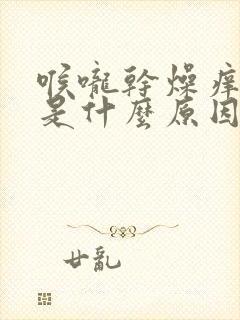 喉嚨幹燥痒
是什麼原因
廿亂